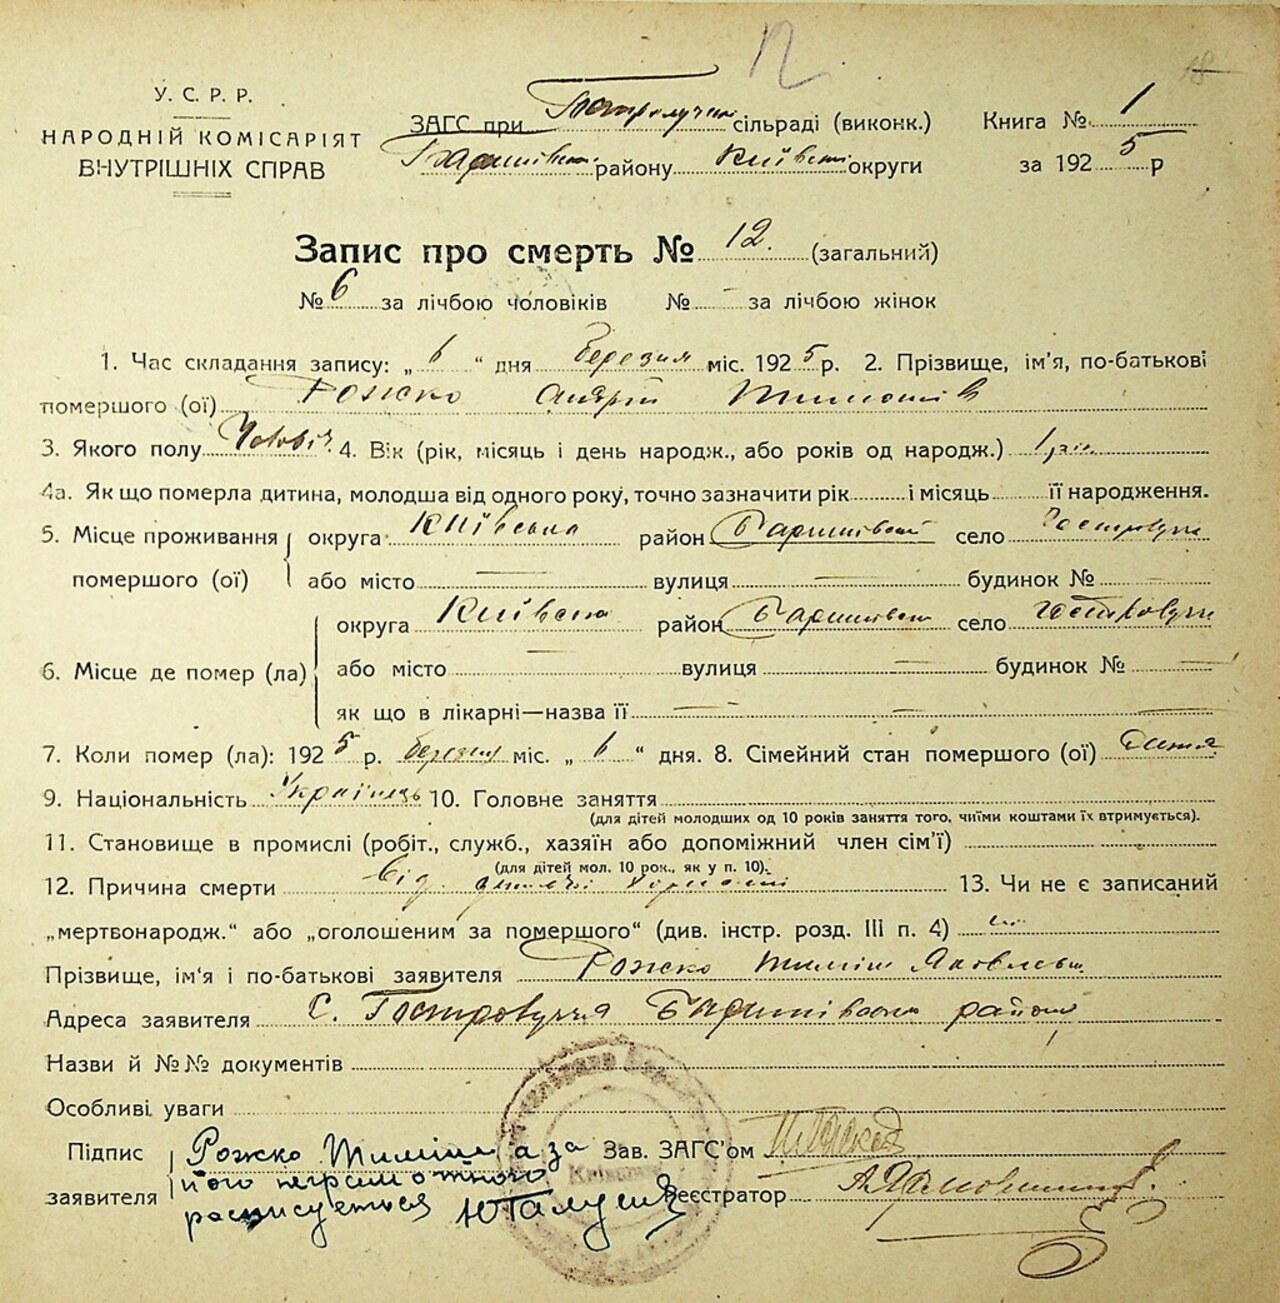 У. С. Р. Р.
НАРОДНІЙ КОМІСАРІЯТ
ВНУТРІШНІХ СПРАВ
ЗАГС при сільраді (виконк.)
району округи
Книга № 1
за 1925 р
Запис про смерть № 12. (загальний)
№ 6 за лічбою чоловіків № – за лічбою жінок
1. Час складання запису: „ 6 “ дня березня міс. 1925 р. 2. Прізвище, ім'я, по-батькові
помершого (ої) Рожко Андрій
3. Якого полу 4. Вік (рік, місяць і день народж., або років од народж.) 1
4а. Як що померла дитина, молодша від одного року, точно зазначити рік і місяць її народження.
5. Місце проживання округа Київська район село
помершого (ої) або місто — вулиця — будинок № —
округа район село
6. Місце де помер (ла) або місто — вулиця — будинок № —
як що в лікарні—назва її — — — —
7. Коли помер (ла): 1925 р. березня міс. „ 6 “ дня. 8. Сімейний стан помершого (ої) Дитя
9. Національність Українець 10. Головне заняття
(для дітей молодших од 10 років заняття того, чиїми коштами їх втримується).
11. Становище в промислі (робіт., служб., хазяїн або допоміжний член сім'ї)
(для дітей мол. 10 рок., як у п. 10).
12. Причина смерти Від 13. Чи не є записаний
„мертвонародж.“ або „оголошеним за помершого“ (див. інстр. розд. III п. 4)
Прізвище, ім'я і по-батькові заявителя Рожко Тиміш
Адреса заявителя С. району
Назви й №№ документів
Особливі уваги
Підпис
заявителя
Рожко Тиміш а за
його неграмотного
расписується
Зав. ЗАГС'ом
Реєстратор